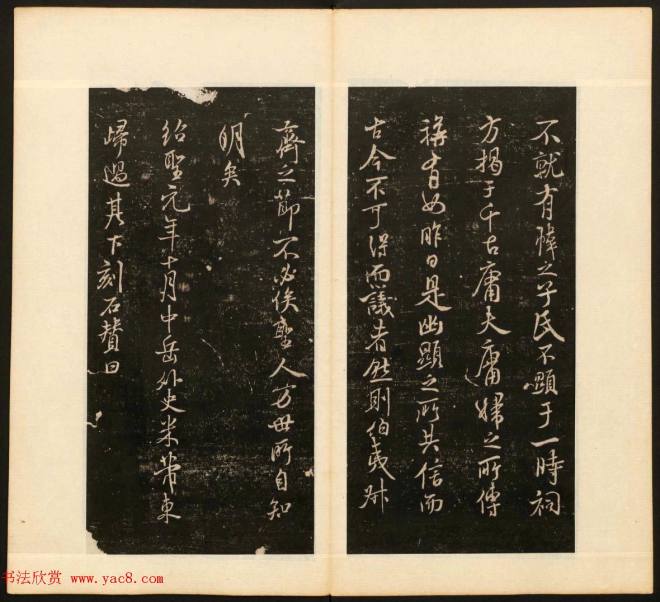 不就有偉之子氏不顯于一時祠
方揭于千古庸夫庸婦之所傳
禱者如昨日是幽顯之所共信而
古今不可得而議者然則伯夷叔
齊之節不必俟聖人方毋所自知
明矣
紹聖元年十月中岳外史米芾東
歸過其下刻石贊曰
书法欣赏 www.yac8.com